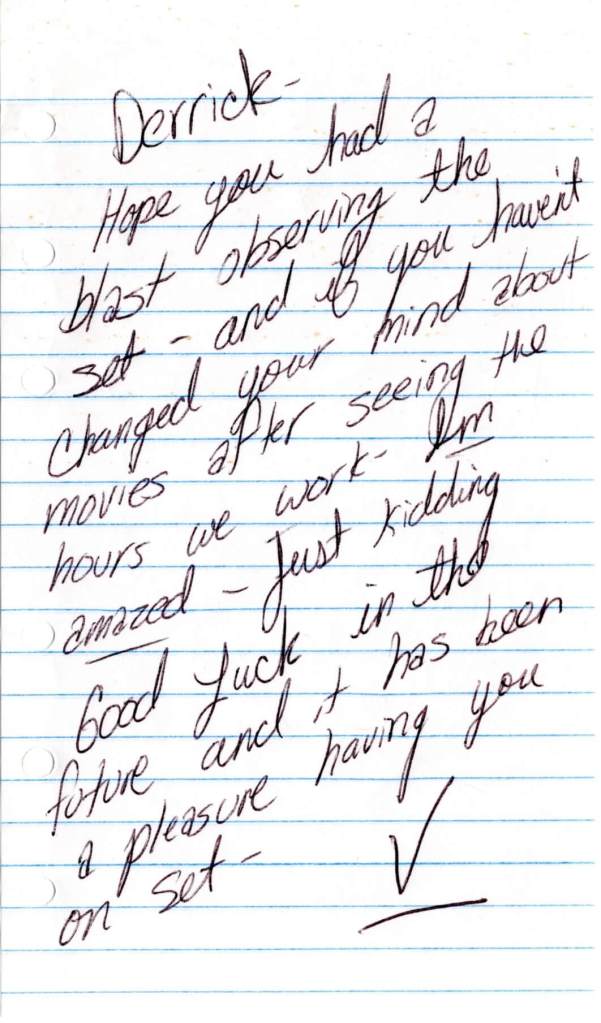 Derrick-
Hope you had a
blast observing the
set - and if you haven't
changed your mind about
movies after seeing the
hours we work - I'm
amazed - Just kidding
Good luck in the
future and it has been
a pleasure having you
on set -
V